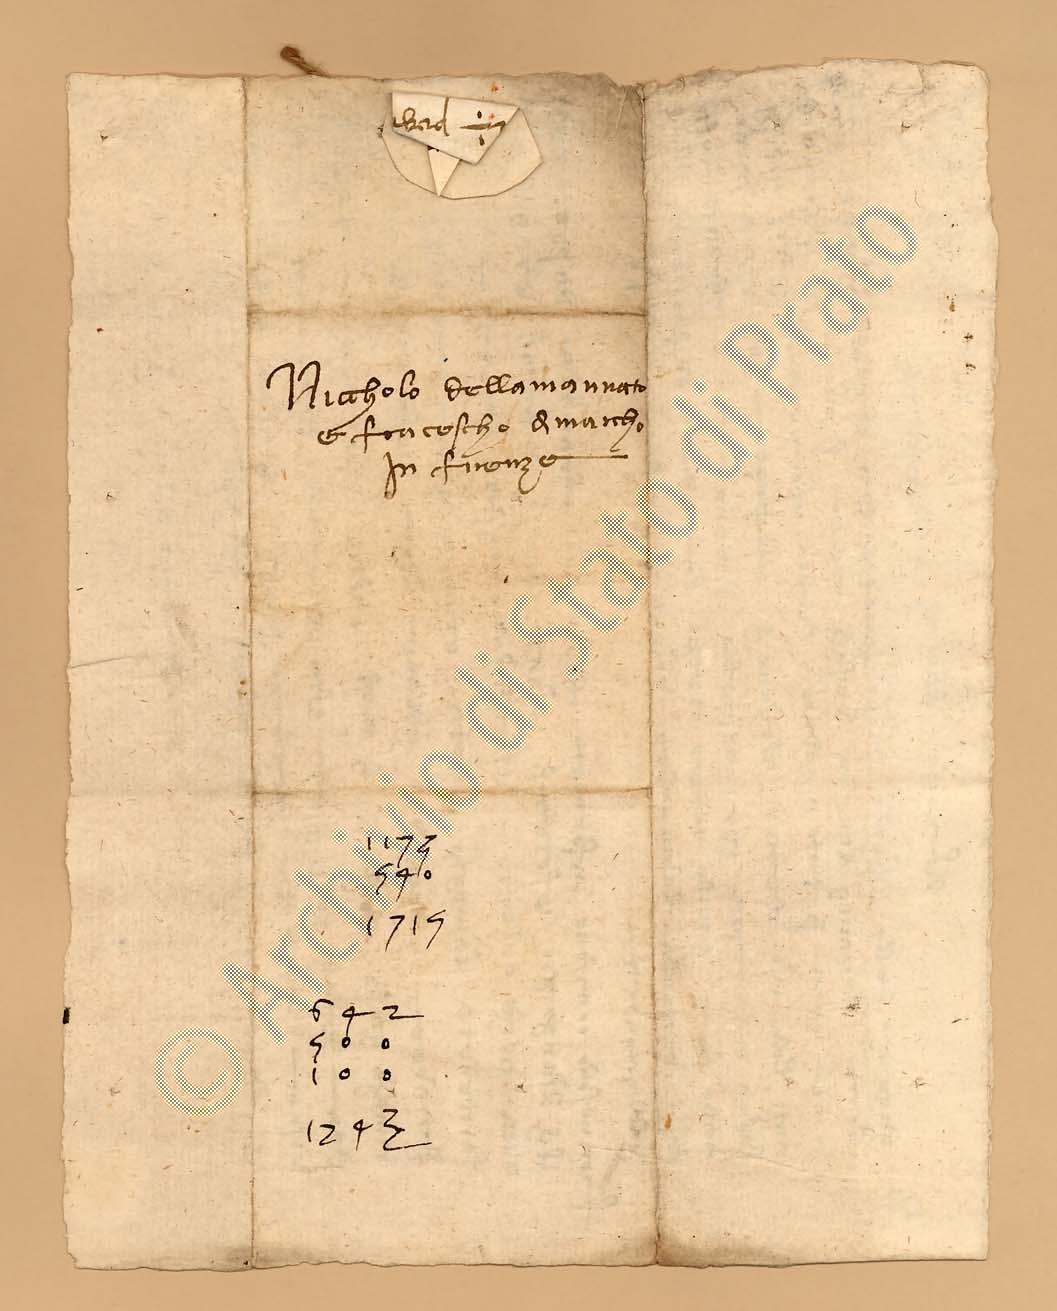 Niccholo dellamannato
e francescho di marcho
In firenze
1175
540
1715
642
500
100
1242
© Archivio di Stato di Prato